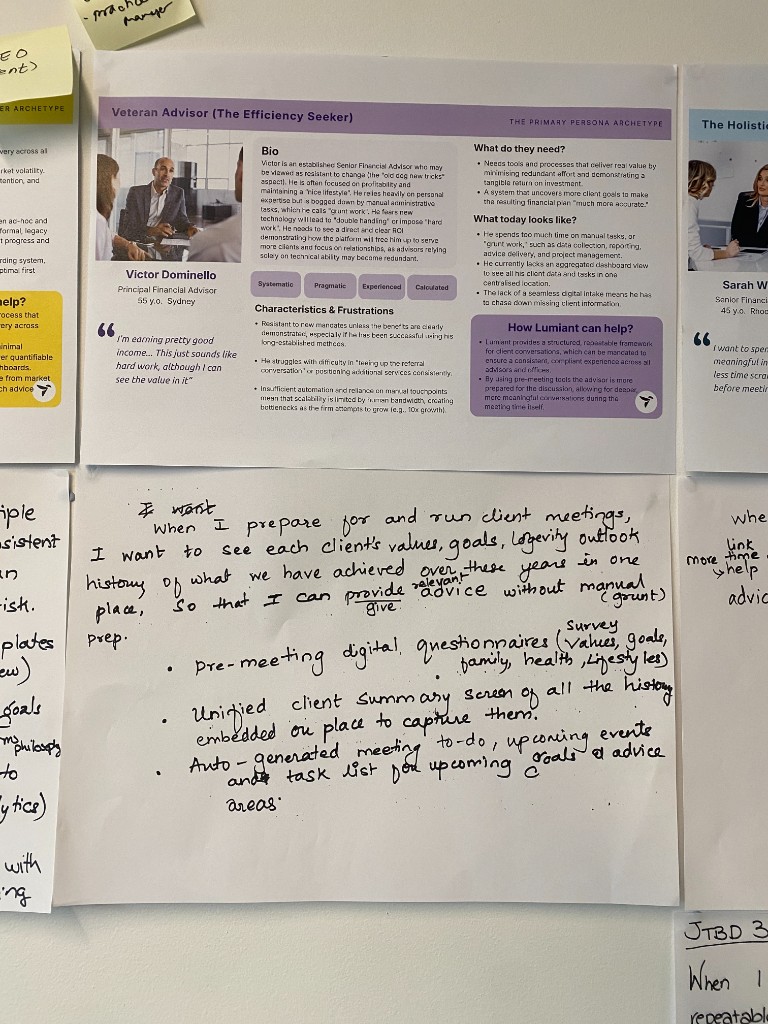 - practice
manager
EO
ent)
ER ARCHETYPE
very across all
rket volatility.
tention, and
en ad-hoc and
formal, legacy
t progress and
rding system,
optimal first
help?
process that
very across
inimal
er quantifiable
hboards.
e from market
ch advice
Veteran Advisor (The Efficiency Seeker)
THE PRIMARY PERSONA ARCHETYPE
Victor Dominello
Principal Financial Advisor
55 y.o. Sydney
“I'm earning pretty good
income... This just sounds like
hard work, although I can
see the value in it”
Bio
Victor is an established Senior Financial Advisor who may
be viewed as resistant to change (the "old dog new tricks"
aspect). He is often focused on profitability and
maintaining a "nice lifestyle". He relies heavily on personal
expertise but is bogged down by manual administrative
tasks, which he calls "grunt work". He fears new
technology will lead to "double handling" or impose "hard
work". He needs to see a direct and clear ROI
demonstrating how the platform will free him up to serve
more clients and focus on relationships, as advisors relying
solely on technical ability may become redundant.
Systematic
Pragmatic
Experienced
Calculated
Characteristics & Frustrations
• Resistant to new mandates unless the benefits are clearly
demonstrated, especially if he has been successful using his
long-established methods.
• He struggles with difficulty in "teeing up the referral
conversation" or positioning additional services consistently.
• Insufficient automation and reliance on manual touchpoints
mean that scalability is limited by human bandwidth, creating
bottlenecks as the firm attempts to grow (e.g., 10x growth).
What do they need?
• Needs tools and processes that deliver real value by
minimising redundant effort and demonstrating a
tangible return on investment.
• A system that uncovers more client goals to make
the resulting financial plan "much more accurate."
What today looks like?
• He spends too much time on manual tasks, or
"grunt work," such as data collection, reporting,
advice delivery, and project management.
• He currently lacks an aggregated dashboard view
to see all his client data and tasks in one
centralised location.
• The lack of a seamless digital intake means he has
to chase down missing client information.
How Lumiant can help?
• Lumiant provides a structured, repeatable framework
for client conversations, which can be mandated to
ensure a consistent, compliant experience across all
advisors and offices.
• By using pre-meeting tools the advisor is more
prepared for the discussion, allowing for deeper,
more meaningful conversations during the
meeting time itself.
The Holistic
Sarah W
Senior Financi
45 y.o. Rhod
“I want to spen
meaningful in
less time scra
before meetin
iple
sistent
an
risk.
plates
ew)
goals
philosophy
to
ytics)
with
ing
I want
When I prepare for and run client meetings,
I want to see each client's values, goals, longevity outlook
history of what we have achieved over these years in one
place, so that I can provide relevant advice without manual
give (grunt)
prep.
• Pre-meeting digital questionnaires (survey
values, goals,
family, health, lifestyles)
• Unified client summary screen of all the history
embedded on place to capture them.
• Auto-generated meeting to-do, upcoming events
and task list for upcoming goals & advice
areas.
whe
link
more time
help
advic
JTBD 3
When I
repeatabl